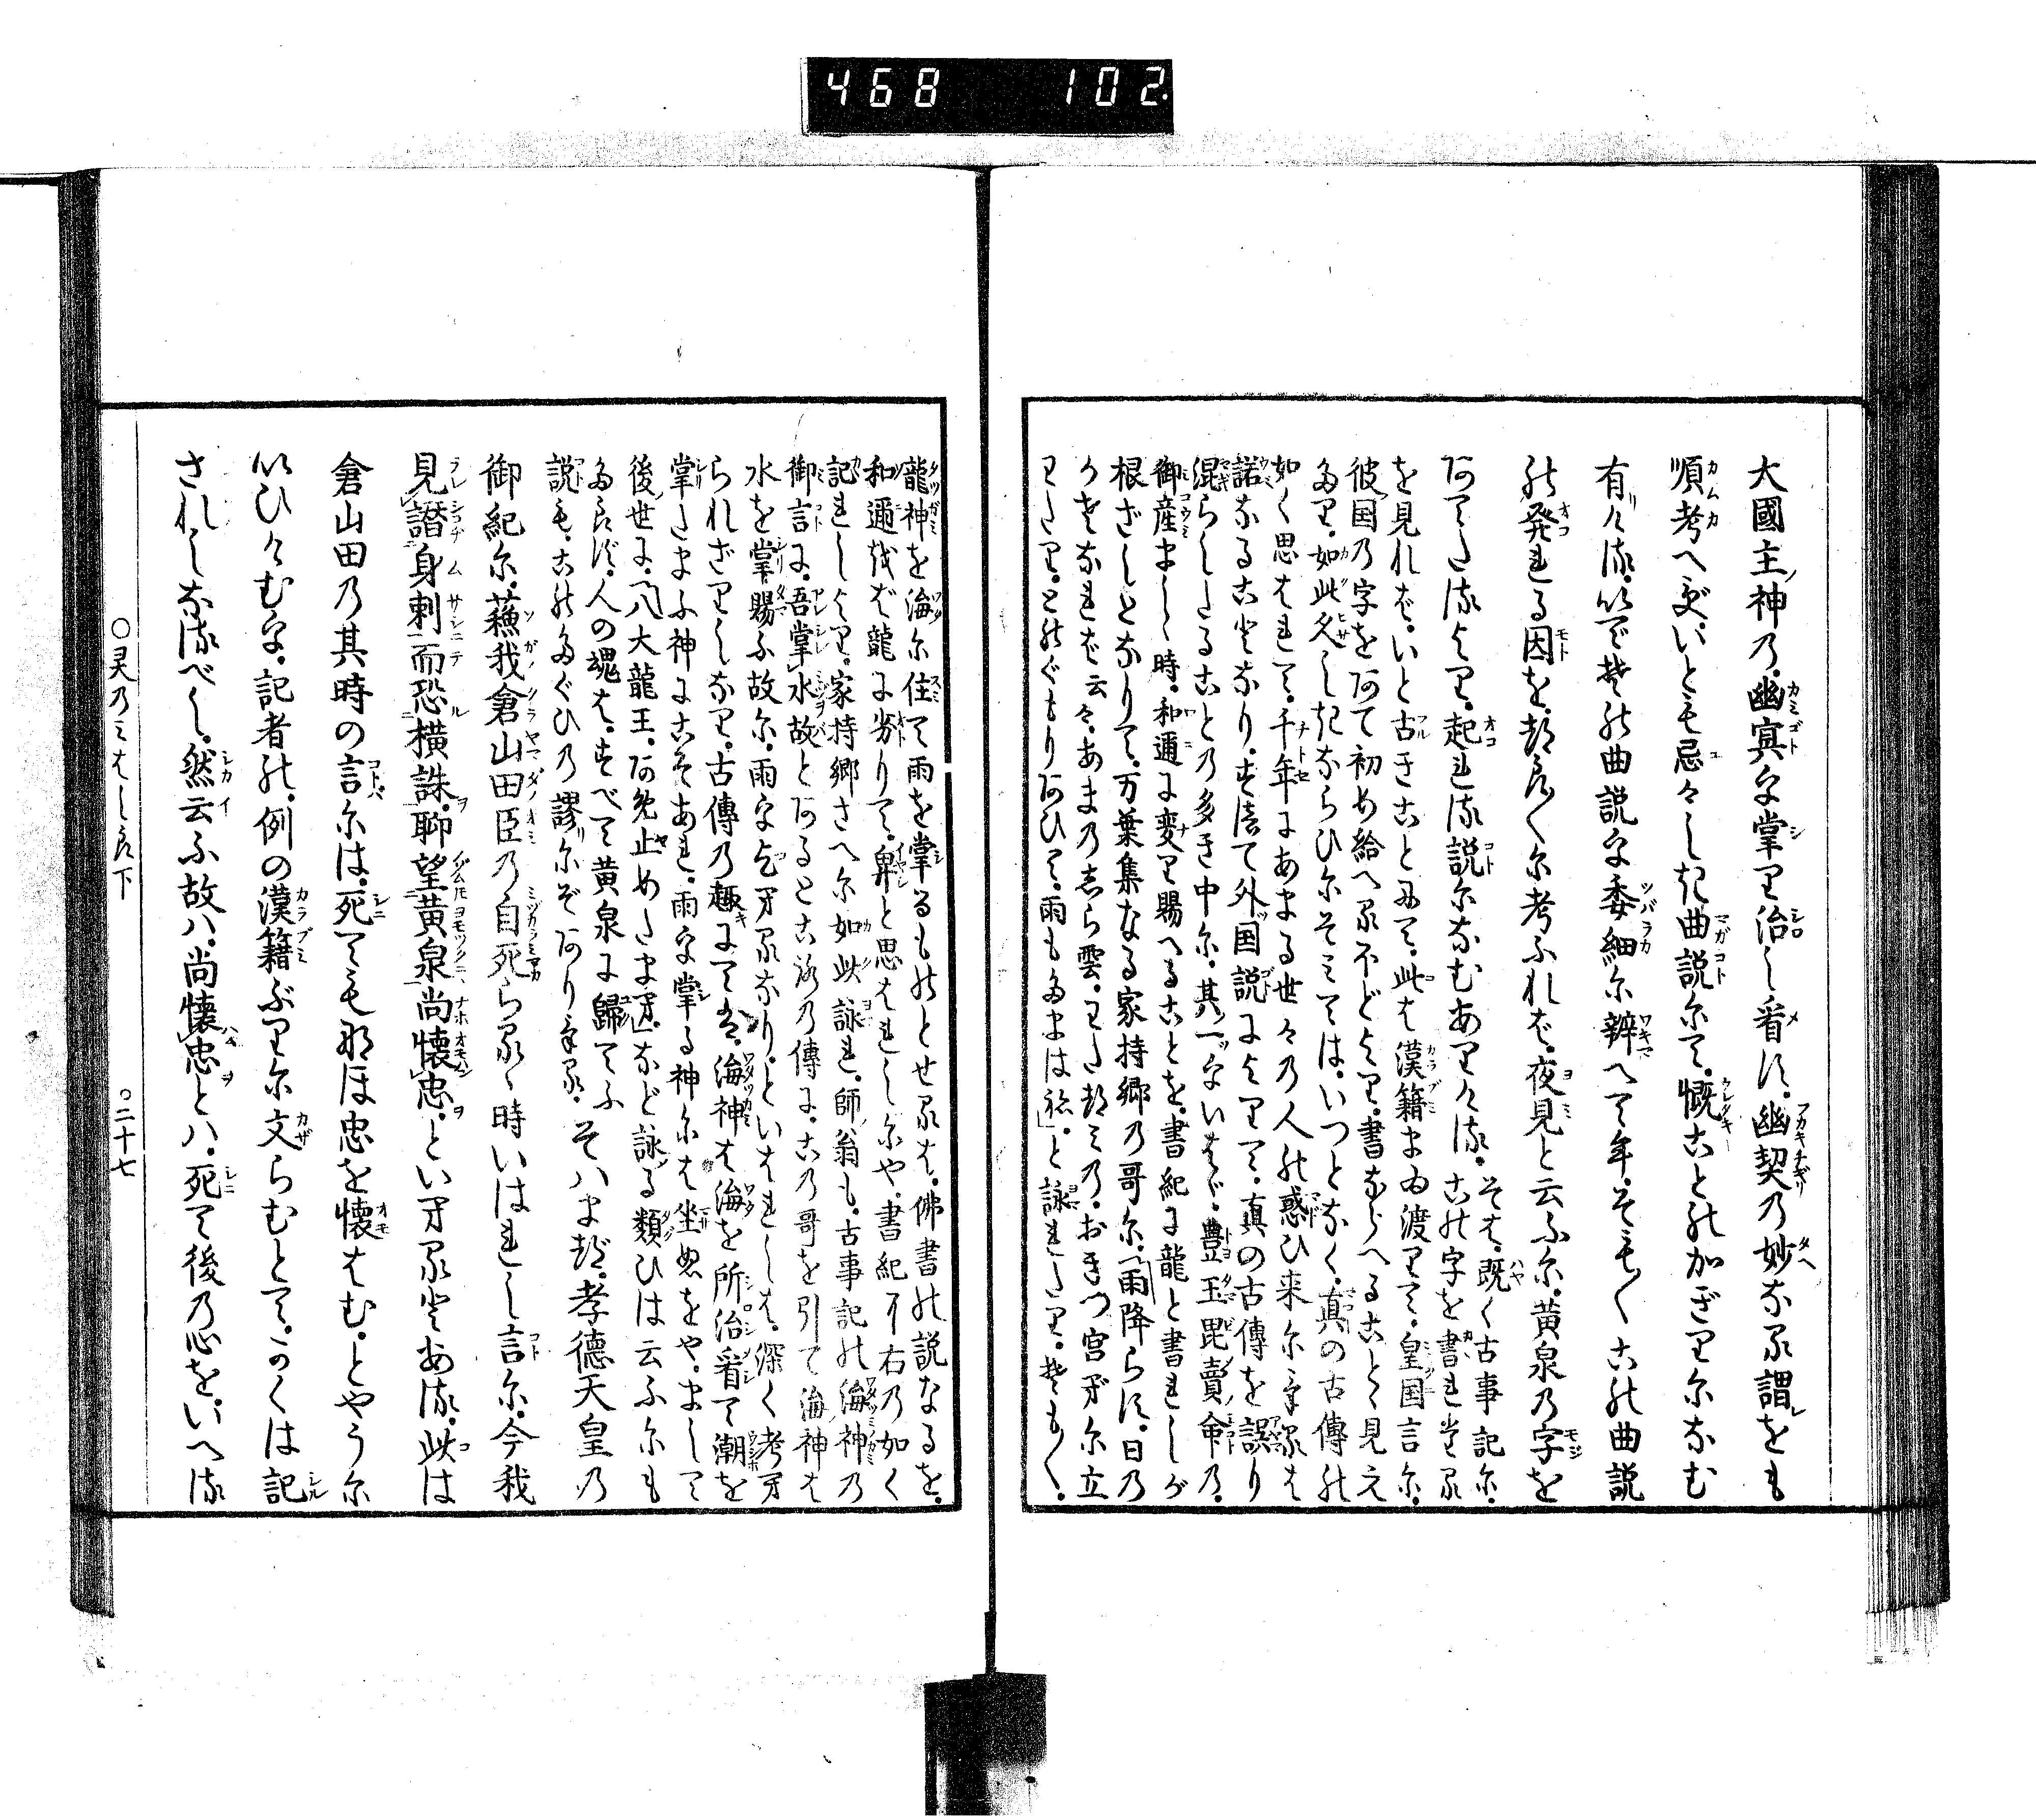 468 102
大國主ノ神乃。幽冥字掌り治し看に。幽契乃妙なる謂をも
順考へず。いとも忌々しき曲説にて。慨きことの加ぎりになむ
有りける。いでその曲説を委細に辨へてむ。そも〳〵この曲説
の発れる因を。つら〳〵に考ふれば。夜見と云ふに。黄泉の字を
あてたるより。起れる説になむありける。そは。既く古事記に。
この字を書れたる
を見れば。いと古きことにて。此は漢籍まゐ渡りて。皇国言に。
彼国の字をあて初め給へるほどより。書ならへることゝ見え
たり。如此久しきならひにそみては。いつとなく。真の古傳の
如く思はれて。千年にあまる世々の人の惑ひ来にけるは
諾なることなり。すべて外国説によりて。真の古傳を誤り
混らしたることの多き中に。其一ッをいはゞ。豊玉毘賣ノ命の。
御産ましゝ時。和邇に変り賜へることを。書紀に龍と書れしが
根ざしとなりて。万葉集なる家持卿の哥に。雨降らず。日の
かさなれば云々。あまのしら雲。わたつみの。おきつ宮べに立
わたり。とのぐもりあひて。雨もたまはね。と詠れたり。そも〳〵。
龍神を海に住て雨を掌るものとせるは。佛書の説なるを。
和邇をば龍に劣りて。卑と思はれしにや。書紀に右の如く
記れしより。家持卿さへに如此詠れ。師ノ翁も。古事記の海神の
御言に。吾掌水故とあるところの傳に。この哥を引て海神は
水を掌賜ふ故に。雨を乞するなり。といはれしは。深く考す
られざりしなり。古傳の趣にては。海神は海を所治看て潮を
掌りたまふ神にこそあれ。雨を掌る神には坐ぬをや。まして
後ノ世に。八大龍王。あめ止めたまへ。など詠る類ひは云ふにも
たらず。人の魂は。すべて黄泉に歸てふ
説も。このたぐひの謬にぞありける。そハまづ。孝德天皇の
御紀に。蘓我倉山田臣の自死らるゝ時いはれし言に。今我
見譖身刺而恐横誅。聊望黄泉尚懐忠。といすることある。此は
倉山田の其時の言には。死ても那ほ忠を懐はむ。とやうに
いひけむを。記者の。例の漢籍ぶりに文らむとて。かくは記
されしなるべし。然云ふ故ハ。尚懐忠とハ。死て後の心を。いへる
○灵乃みはしら下 ○二十七